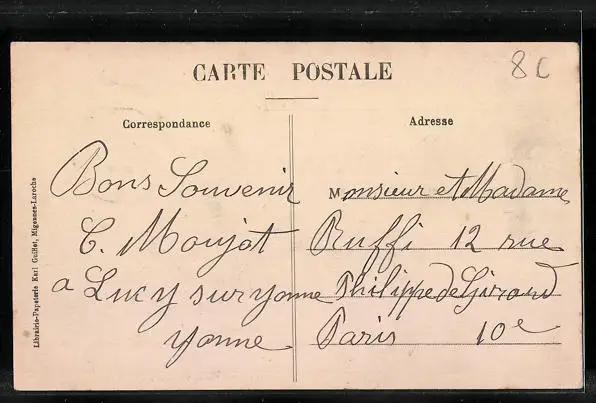 CARTE POSTALE
8C
Correspondance
Bons Souvenir
C. Moujot
a Lucy sur yonne
yonne
Adresse
Monsieur et Madame
Ruffi 12 rue
Philippe de Girard
Paris 10e
Librairie-Papeterie Karl Guillot, Migennes-Laroche